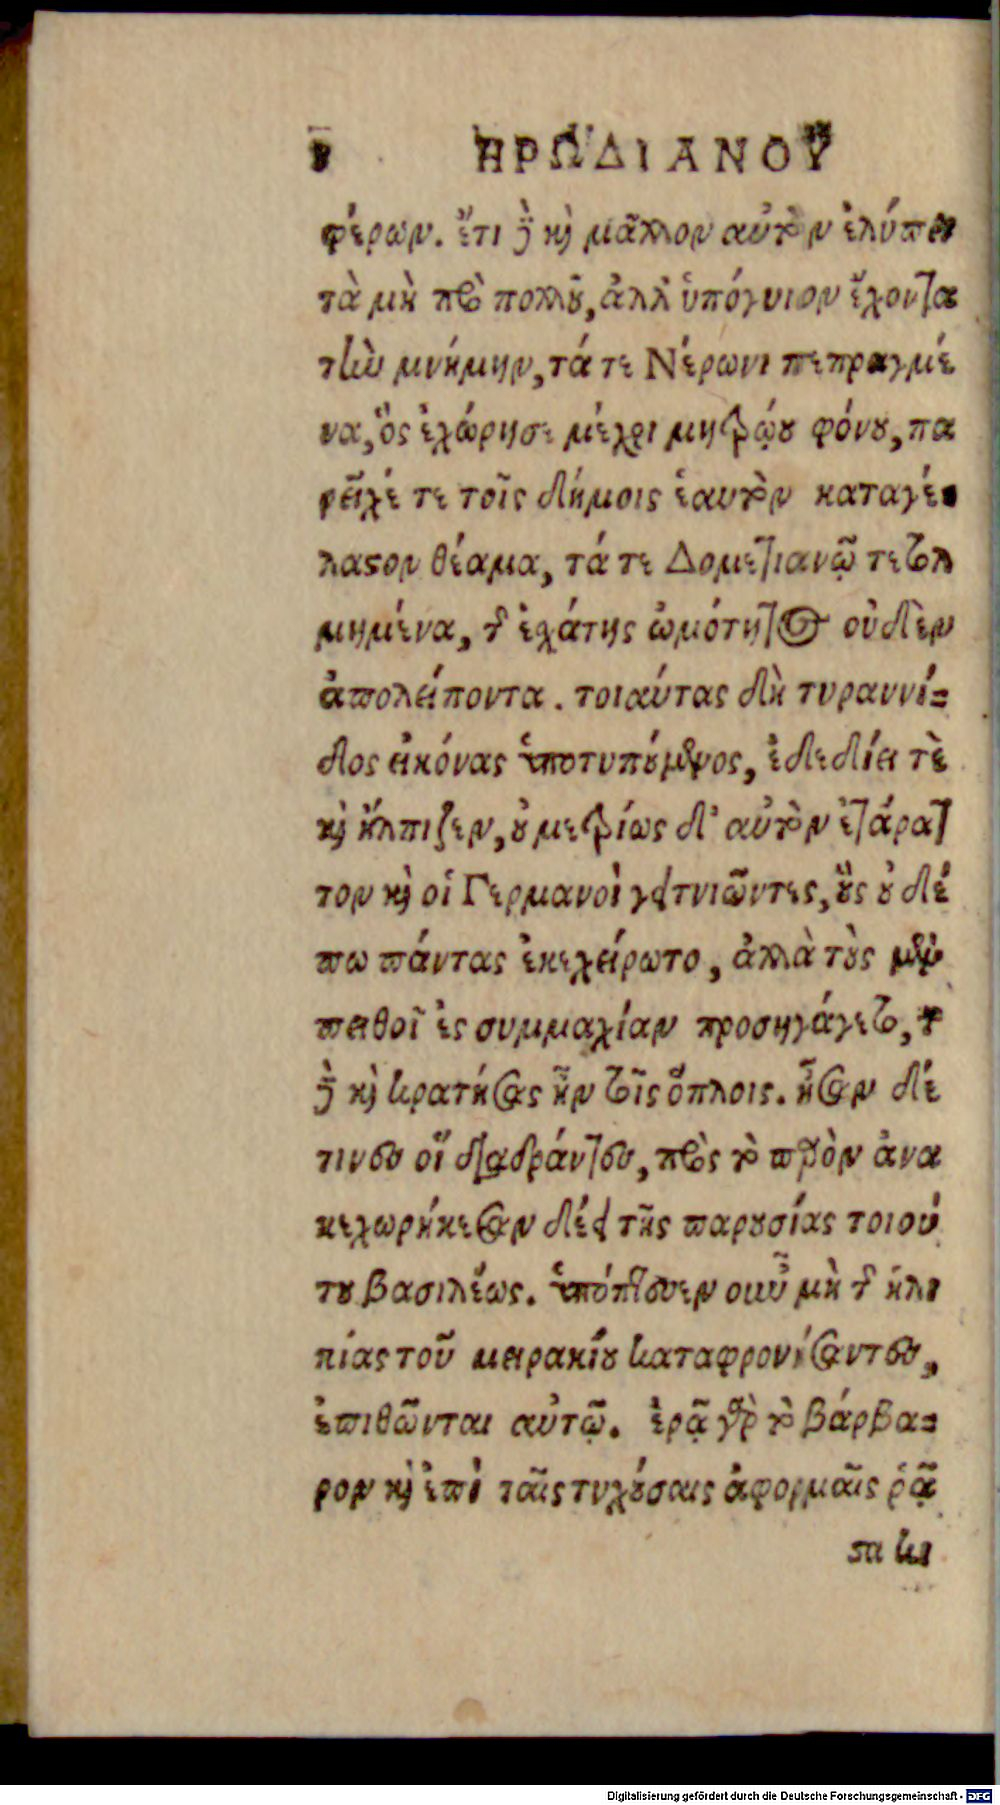 ΗΡΩΔΙΑΝΟΥ
φέρων. ἔτι δὲ καὶ μᾶλλον αὐτὸν ἐλύπει
τὰ μὴ πρὸ πολλοῦ, ἀλλ' ὑπόγυιον ἔχοντα
τὴν μνήμην, τά τε Νέρωνι πεπραγμέ
να, ὃς ἐχώρησε μέχρι μητρῴου φόνου, πα
ρεῖχέ τε τοῖς δήμοις ἑαυτὸν καταγέ-
λαστον θέαμα, τά τε Δομετιανῷ τετολ
μημένα, τῆς ἐσχάτης ὠμότητος οὐδὲν
ἀπολείποντα. τοιαύτας δὴ τυραννί-
δος εἰκόνας ὑποτυπούμενος, ἐδεδίει τὲ
καὶ ἤλπιζεν, οὐ μετρίως δ' αὐτὸν ἐτάρατ
τον καὶ οἱ Γερμανοὶ γειτνιῶντες, οὓς οὐδέ
πω πάντας ἐκεχείρωτο, ἀλλὰ τοὺς μὲν
πειθοῖ ἐς συμμαχίαν προσηγάγετο, τῶν
δὲ καὶ κρατήσας ἦν τοῖς ὅπλοις. ἦσαν δέ
τινες οἳ διαδράντες, πρὸς τὸ παρὸν ἀνα
κεχωρήκεσαν δέει τῆς παρουσίας τοιού
του βασιλέως. ὑπόπτευεν οὖν μὴ τῆς ἡλι
κίας τοῦ μειρακίου καταφρονήσαντες,
ἐπιθῶνται αὐτῷ. ἐρᾷ γὰρ τὸ βάρβα-
ρον καὶ ἐπὶ ταῖς τυχούσαις ἀφορμαῖς ῥᾷ
στα κι
Digitalisierung gefördert durch die Deutsche Forschungsgemeinschaft - DFG